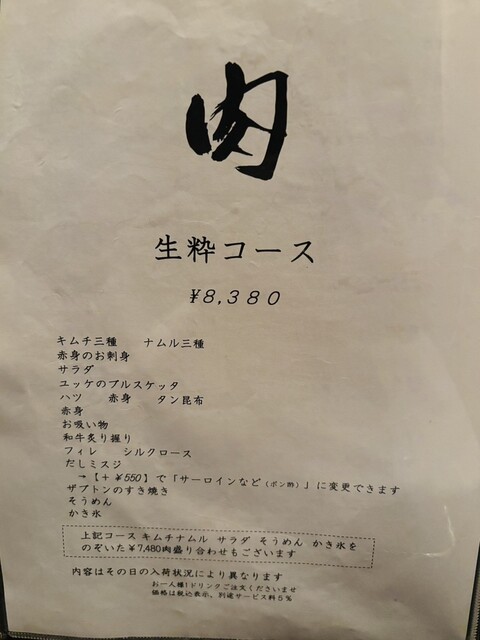 肉
生粋コース
¥8,380
キムチ三種 ナムル三種
赤身のお刺身
サラダ
ユッケのブルスケッタ
ハツ 赤身 タン昆布
赤身
お吸い物
和牛炙り握り
フィレ シルクロース
だしミスジ
→【+ ¥550】で「サーロインなど(ポン酢)」に変更できます
ザブトンのすき焼き
そうめん
かき氷
上記コース キムチナムル サラダ そうめん かき氷を
のぞいた¥7,480肉盛り合わせもございます
内容はその日の入荷状況により異なります
お一人様1ドリンクご注文くださいませ
価格は税込表示。別途サービス料5%